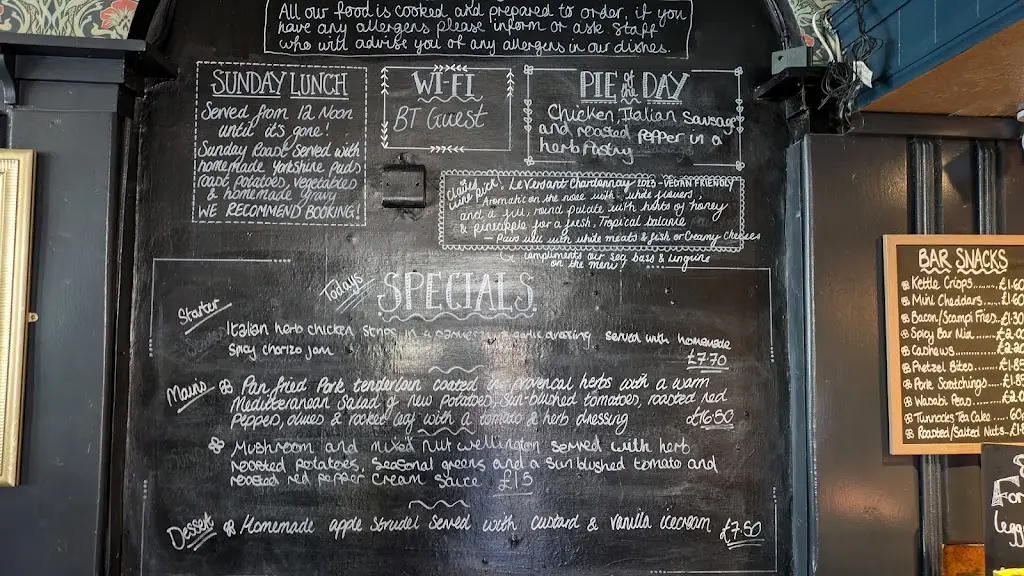 All our food is cooked and prepared to order, if you
have any allergens please inform or ask staff
who will advise you of any allergens in our dishes.
SUNDAY LUNCH
Served from 12 Noon
until it's gone!
Sunday Roast served with
homemade Yorkshire puds
roast potatoes, vegetables
& homemade gravy
WE RECOMMEND BOOKING!
WI-FI
BT Guest
PIE of the DAY
Chicken, Italian Sausage
and roasted pepper in a
herb Pastry
Le Versant Chardonnay 2023 - VEGAN FRIENDLY
Aromatic on the nose with white flowers
and a full, round palate with hints of honey
& pineapple for a fresh, tropical balance
- Pairs well with white meats & fish or Creamy cheeses
compliments our sea bass & linguine
on the menu!
Todays SPECIALS
Starter
Italian herb chicken strips in a served with homemade
spicy chorizo jam £7.70
Mains Pan fried Pork tenderloin coated in provencal herbs with a warm
Mediterranean Salad of new potatoes, sun-blushed tomatoes, roasted red
peppers, olives & rocket leaf with a tomato & herb dressing £16.50
Mushroom and mixed nut wellington served with herb
roasted potatoes, seasonal greens and a sun blushed tomato and
roasted red pepper cream sauce £15
Dessert Homemade apple strudel served with custard & vanilla icecream £7.50
BAR SNACKS
Kettle Crisps........£1.60
Mini Cheddars....£1.60
Bacon/Scampi Fries..£1.30
Spicy Bar Nix
Cashews
Pretzel Bites £1.85
Pork Scratchings £1.85
Wasabi Peas
Tunnocks Tea Cake 60
Roasted/Salted Nuts